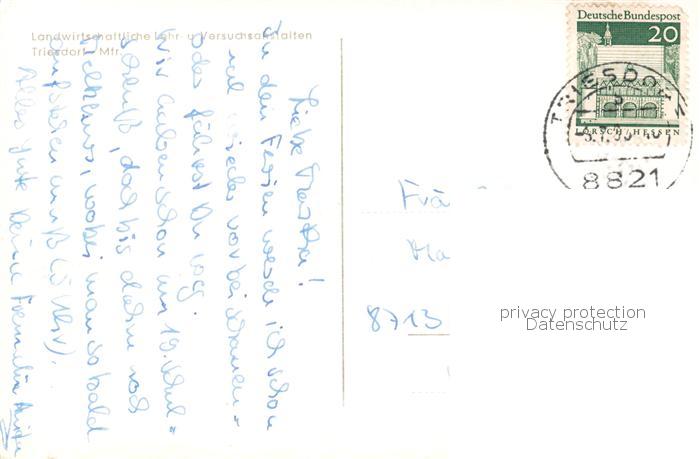 Landwirtschaftliche Lehr- u. Versuchsanstalten
Triesdorf / Mfr.
Liebe Martha!
In den Ferien werde ich schon
mal wieder vorbei schauen -
oder fährst Du weg.
Wir haben schon am 19. Schul=
schluß, das bis dahin noch
wobei man so bald
aufstehen muß (6 Uhr).
Alles Gute Deine Freundin
Deutsche Bundespost
20
LORSCH / HESSEN
TRIESDORF
8821
Frä
Ma
8713
privacy protection
Datenschutz